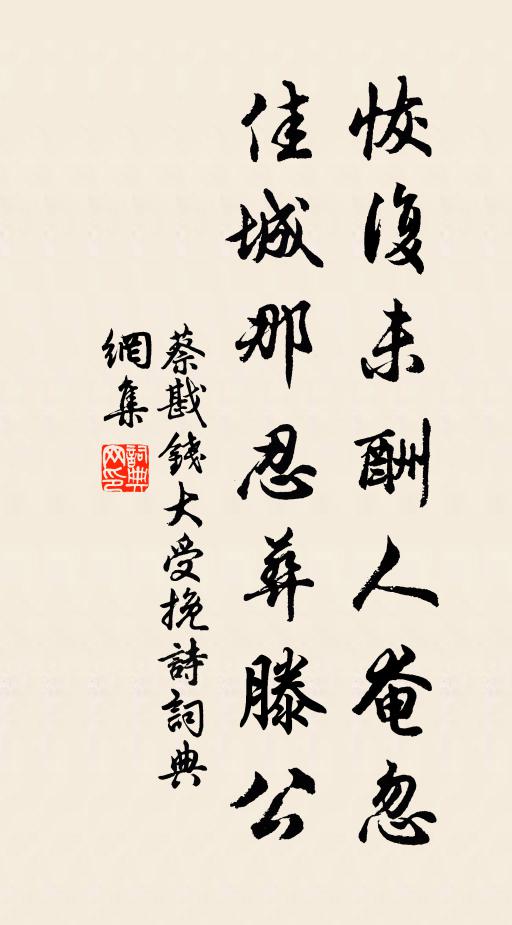 恢復未酬人奄忽
佳城那忍葬滕公
蔡戡錢大受挽詩詞典
網集
詞典網印